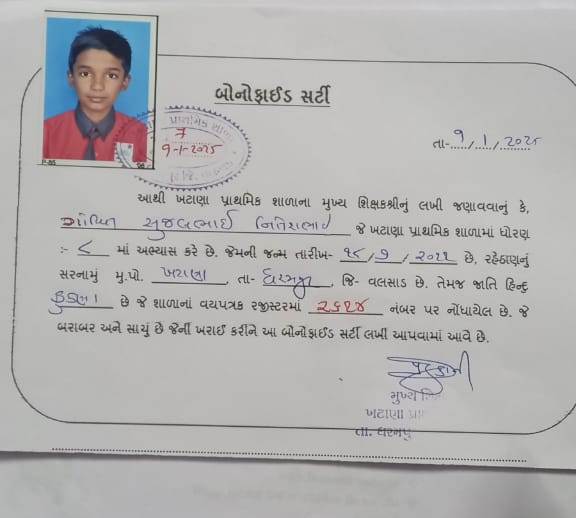 બોનોફાઈડ સર્ટી
પ્રાથમિક
7
9-1-2025
તા- 9 / 1 / 2025
આથી ખટાણા પ્રાથમિક શાળાના મુખ્ય શિક્ષકશ્રીનું લખી જણાવવાનું કે,
ગાંવિત સુજલભાઈ જિતેશભાઈ જે ખટાણા પ્રાથમિક શાળામાં ધોરણ
:- ૮ માં અભ્યાસ કરે છે. જેમની જન્મ તારીખ- / ૭ / ૨૦૧૧ છે, રહેઠાણનું
સરનામું મુ.પો. ખટાણા, તા- ધરમપુર, જિ- વલસાડ છે. તેમજ જાતિ હિન્દુ
કુંકણા છે જે શાળાનાં વયપત્રક રજીસ્ટરમાં નંબર પર નોંધાયેલ છે. જે
બરાબર અને સાચું છે જેની ખરાઈ કરીને આ બોનોફાઈડ સર્ટી લખી આપવામાં આવે છે.
મુખ્ય
ખટાણા
તા. ધરમપુ